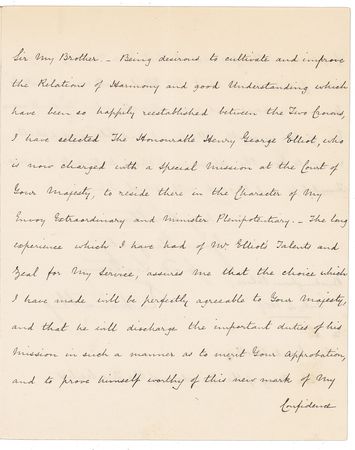 Sir My Brother. _ Being desirous to cultivate and improve
the Relations of Harmony and good Understanding which
have been so happily reestablished between the Two Crowns,
I have selected The Honourable Henry George Elliot, who
is now charged with a Special Mission at the Court of
Your Majesty, to reside there in the Character of My
Envoy Extraordinary and Minister Plenipotentiary. _ The long
experience which I have had of Mr Elliot's Talents and
Zeal for My Service, assures me that the choice which
I have made will be perfectly agreeable to Your Majesty,
and that he will discharge the important duties of his
Mission in such a manner as to merit Your Approbation,
and to prove himself worthy of this new mark of My
Confidence